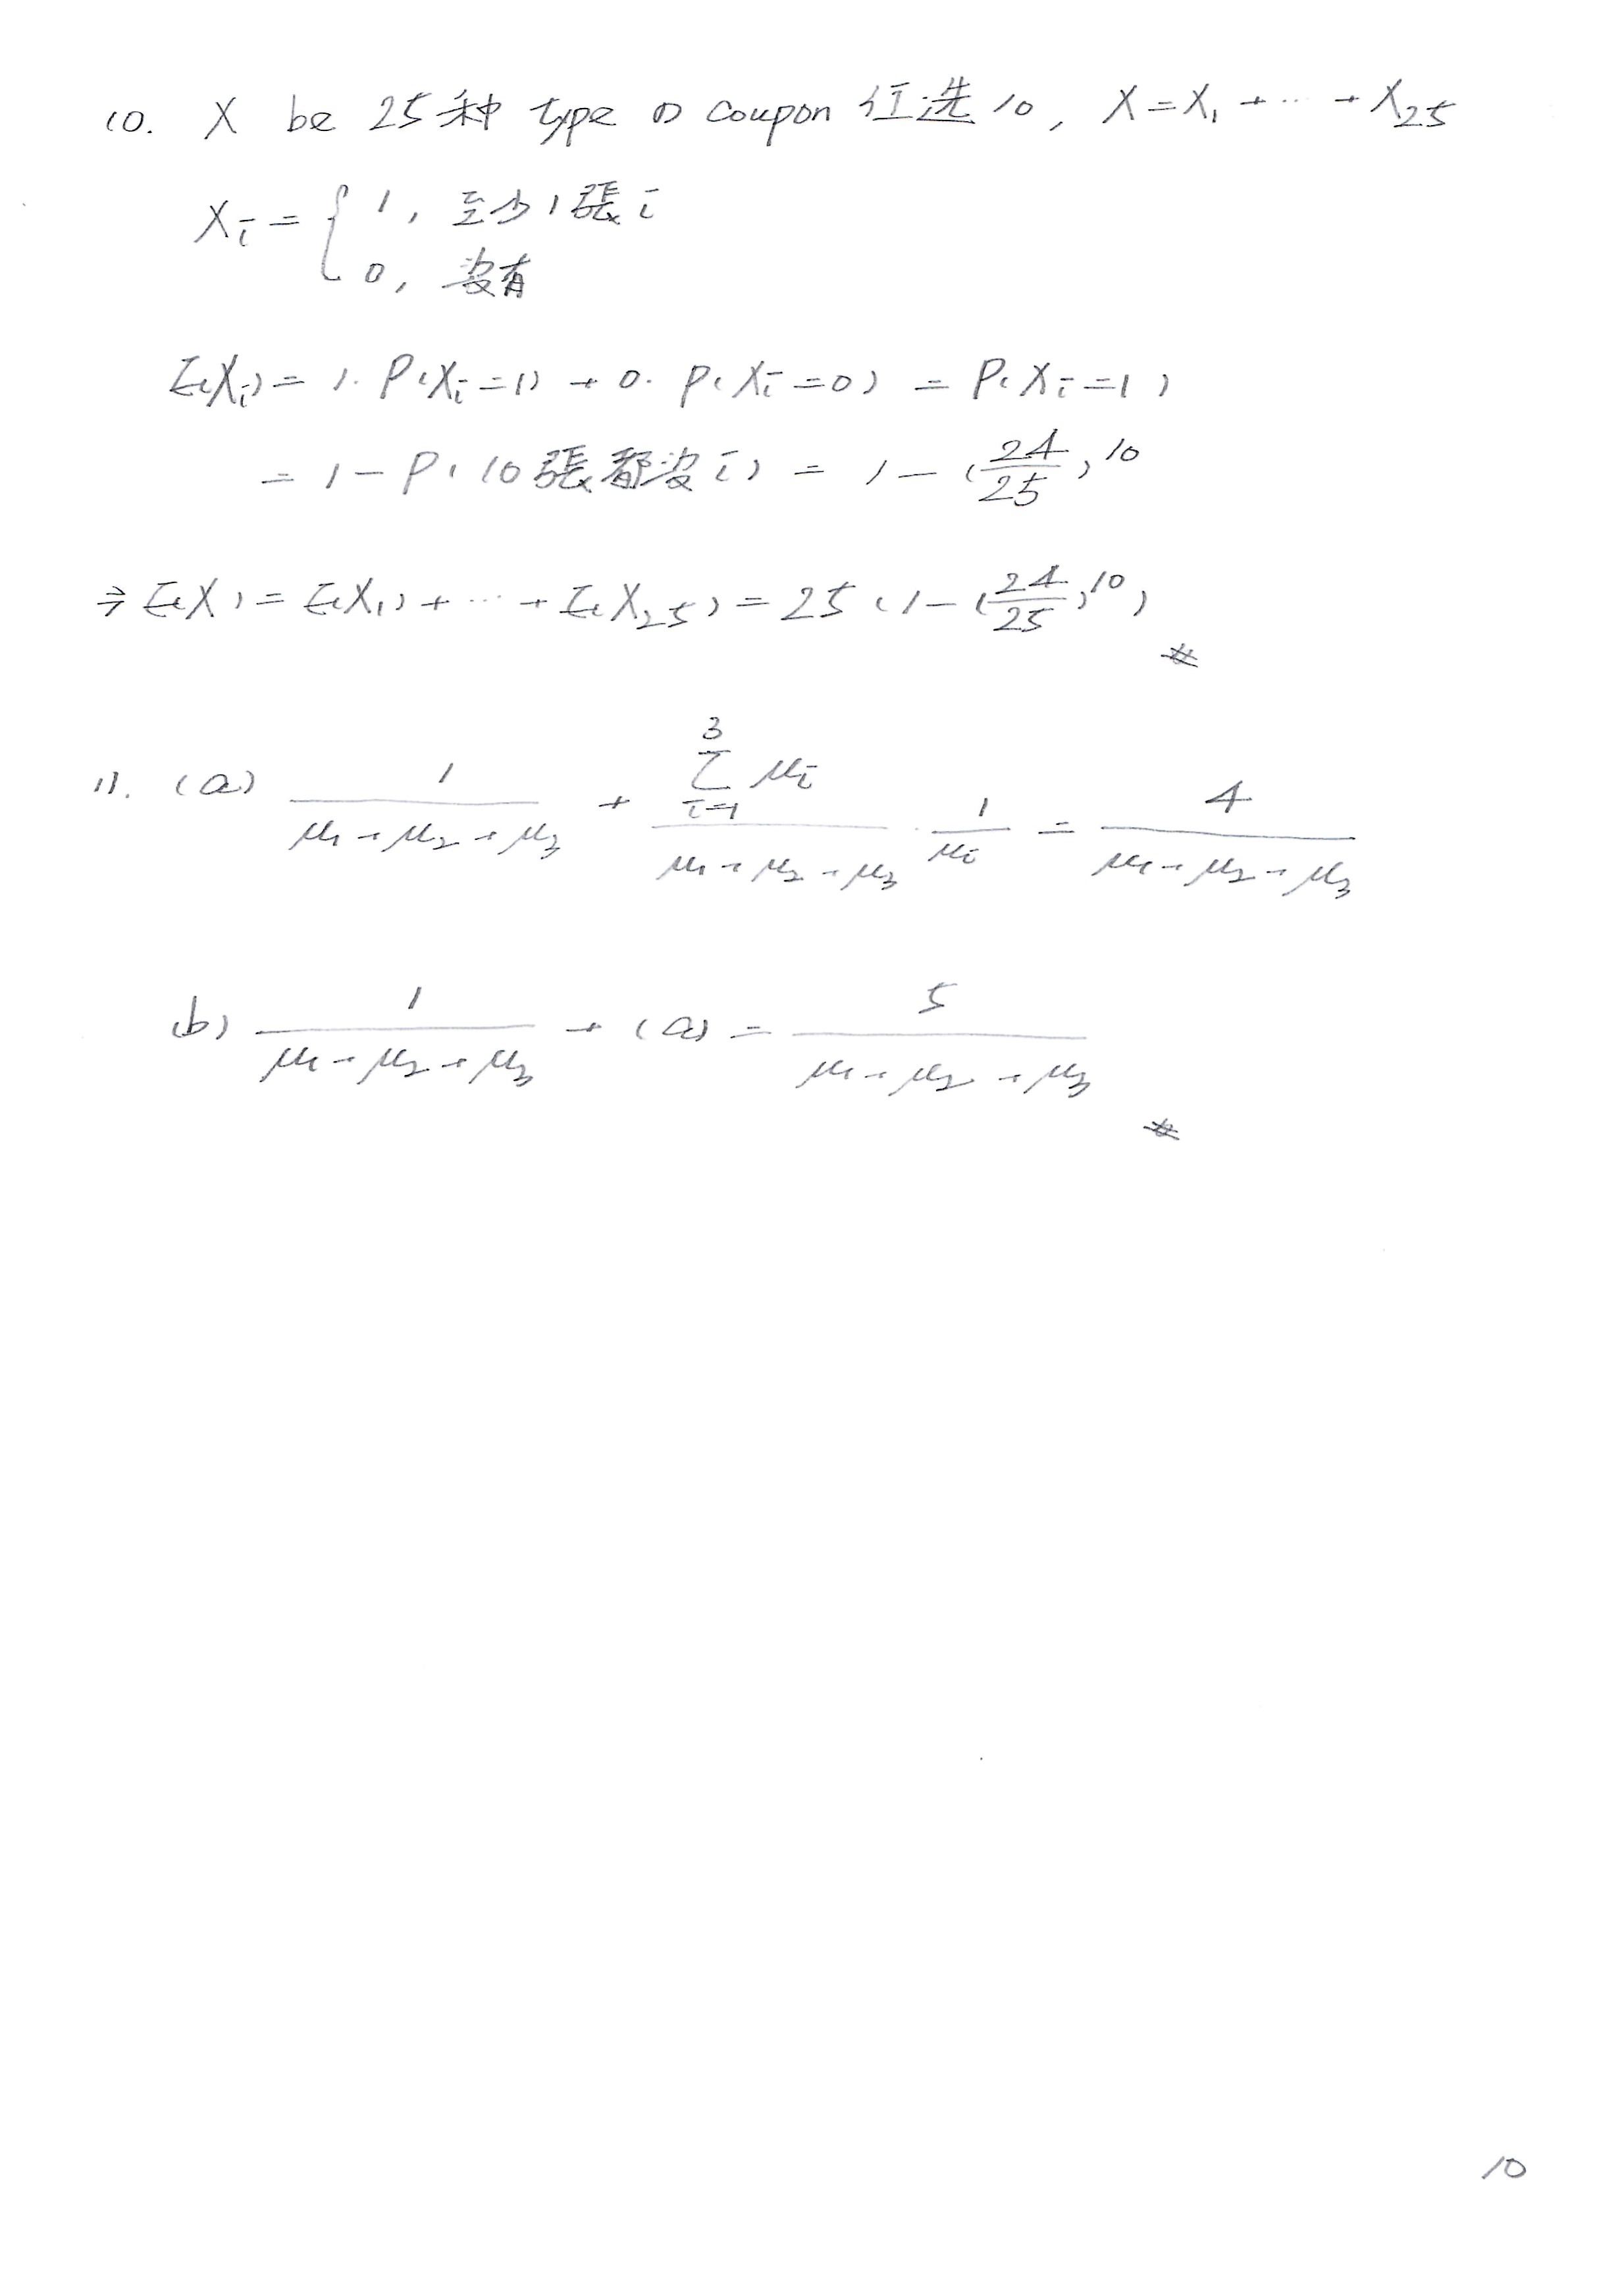 10. X be 25种 type の coupon 任选10, X=X₁+⋯+X₂₅
Xᵢ = { 1, 至少1張i
0, 没有
E(Xᵢ) = 1·P(Xᵢ=1) + 0·P(Xᵢ=0) = P(Xᵢ=1)
= 1 - P(10張都没i) = 1 - (24/25)¹⁰
⇒ E(X) = E(X₁) + ⋯ + E(X₂₅) = 25(1-(24/25)¹⁰) #
11. (a) 1/(μ₁+μ₂+μ₃) + (∑_{i=1}^{3} μᵢ)/(μ₁+μ₂+μ₃) · 1/μᵢ = 4/(μ₁+μ₂+μ₃)
(b) 1/(μ₁+μ₂+μ₃) + (a) = 5/(μ₁+μ₂+μ₃) #
10